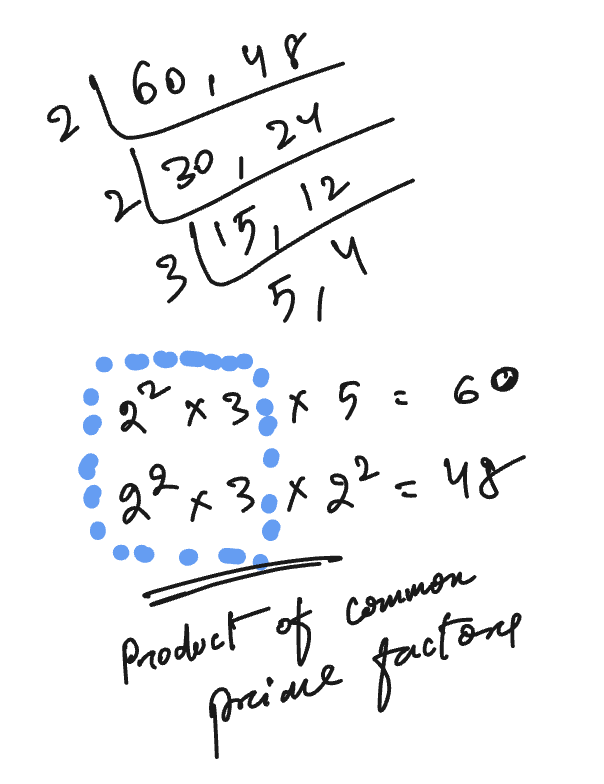 2 60, 48
2 30, 24
3 15, 12
5, 4
2² × 3 × 5 = 60
2² × 3 × 2² = 48
Product of common
prime factors